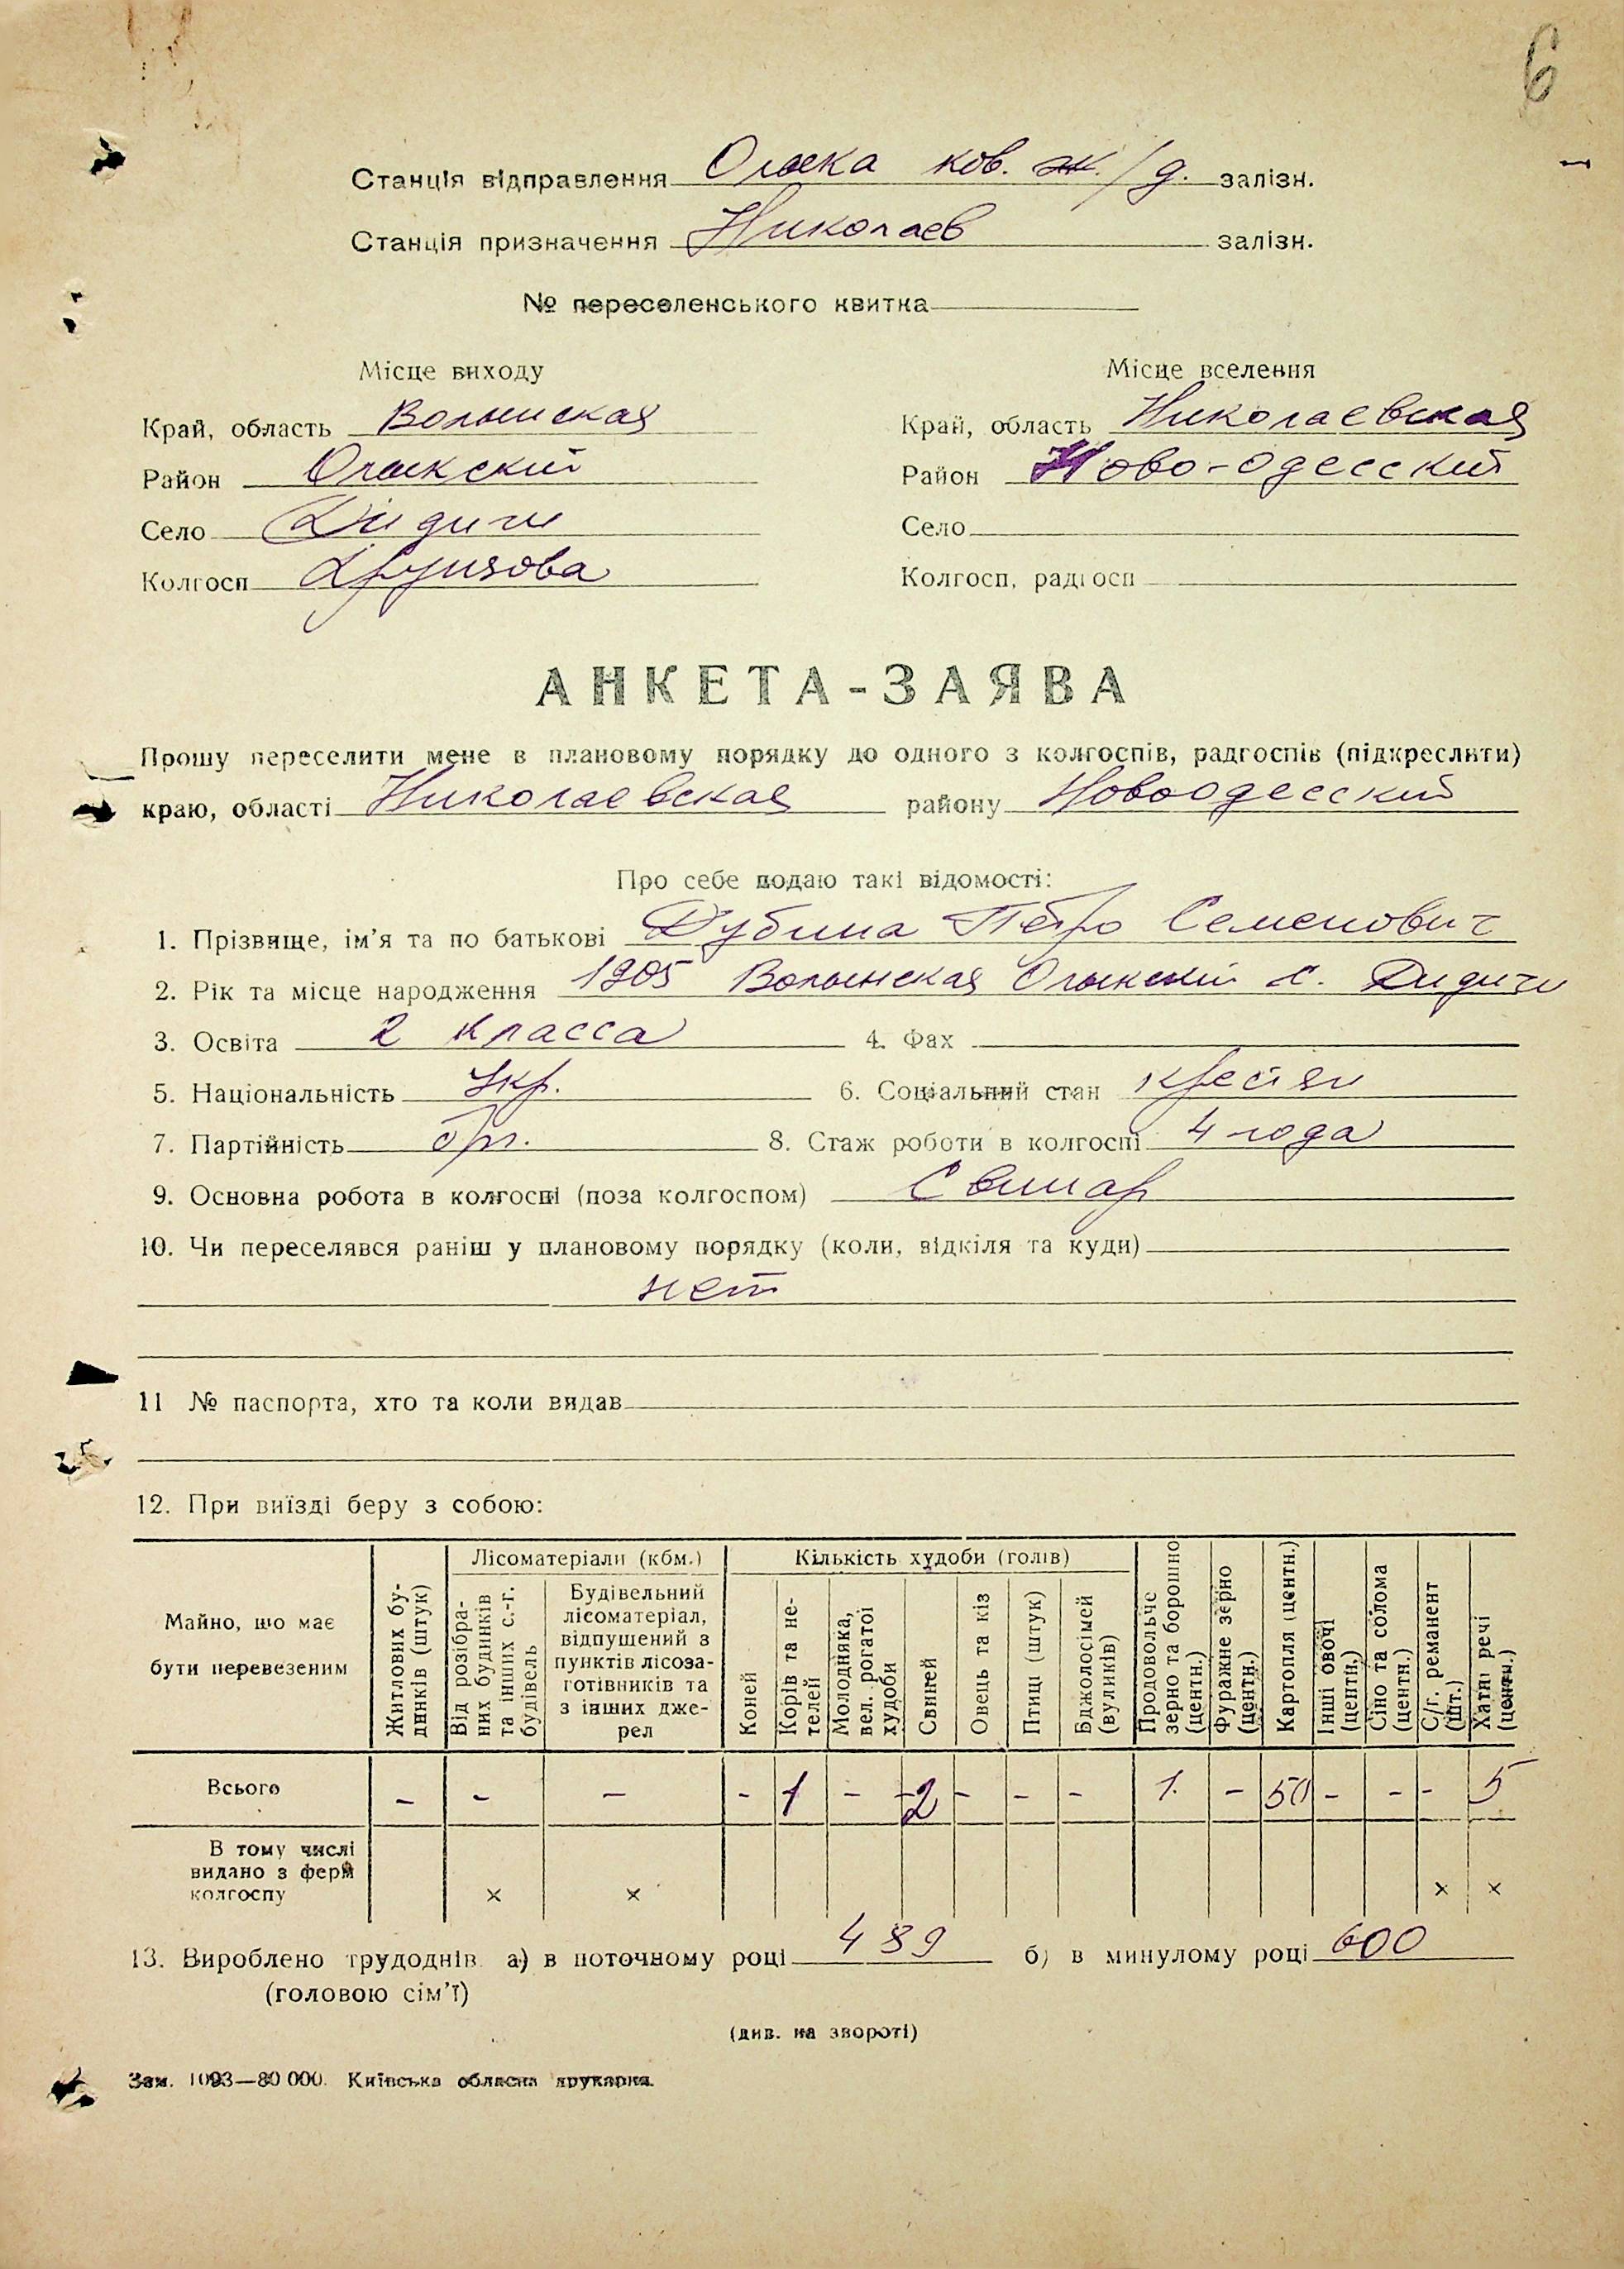 6
Станція відправлення Олыка ков. ж./д. залізн.
Станція призначення Николаев залізн.
№ переселенського квитка
Місце виходу
Край, область Волынская
Район Олыкский
Село Дидичи
Колгосп
Місце вселення
Край, область Николаевская
Район Ново-одесский
Село
Колгосп, радгосп
АНКЕТА-ЗАЯВА
Прошу переселити мене в плановому порядку до одного з колгоспів, радгоспів (підкреслити)
краю, області Николаевская району Новоодесский
Про себе подаю такі відомості:
1. Прізвище, ім'я та по батькові Дубина Петро Семенович
2. Рік та місце народження 1905 Волынская Олыкский с. Дидичи
3. Освіта 2 класса 4. Фах
5. Національність Укр. 6. Соціальний стан крестян
7. Партійність бп. 8. Стаж роботи в колгоспі 4 года
9. Основна робота в колгоспі (поза колгоспом) Свинар
10. Чи переселявся раніш у плановому порядку (коли, відкіля та куди)
нет
11 № паспорта, хто та коли видав
12. При виїзді беру з собою:
Майно, що має бути перевезеним
Житлових будинків (штук)
Лісоматеріали (кбм.)
Від розібраних будинків та інших с.-г. будівель
Будівельний лісоматеріал, відпущений з пунктів лісозаготівників та з інших джерел
Кількість худоби (голів)
Коней
Корів та нетелей
Молодняка, вел. рогатої худоби
Свиней
Овець та кіз
Птиці (штук)
Бджолосімей (вуликів)
Продовольче зерно та борошно (центн.)
Фуражне зерно (центн.)
Картопля (центн.)
Інші овочі (центн.)
Сіно та солома (центн.)
С/г. реманент (шт.)
Хатні речі (центн.)
Всього - - - - 1 - - 2 - - - 1. - 50 - - - 5
В тому числі видано з ферм колгоспу × × × ×
13. Вироблено трудоднів а) в поточному році 489 б) в минулому році 600
(головою сім'ї)
(див. на звороті)
Зам. 1093—80 000. Київська обласна друкарня.